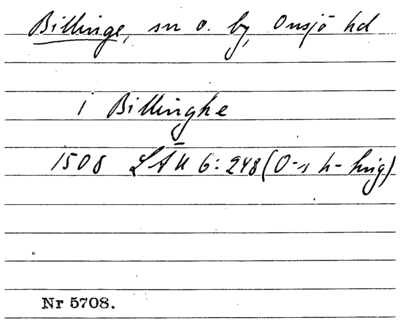 Billinge, sn o. by, Onsjö hd
i Billinghe
1508 LÄU 6:248 (O-s h- hvig)
Nr 5708.